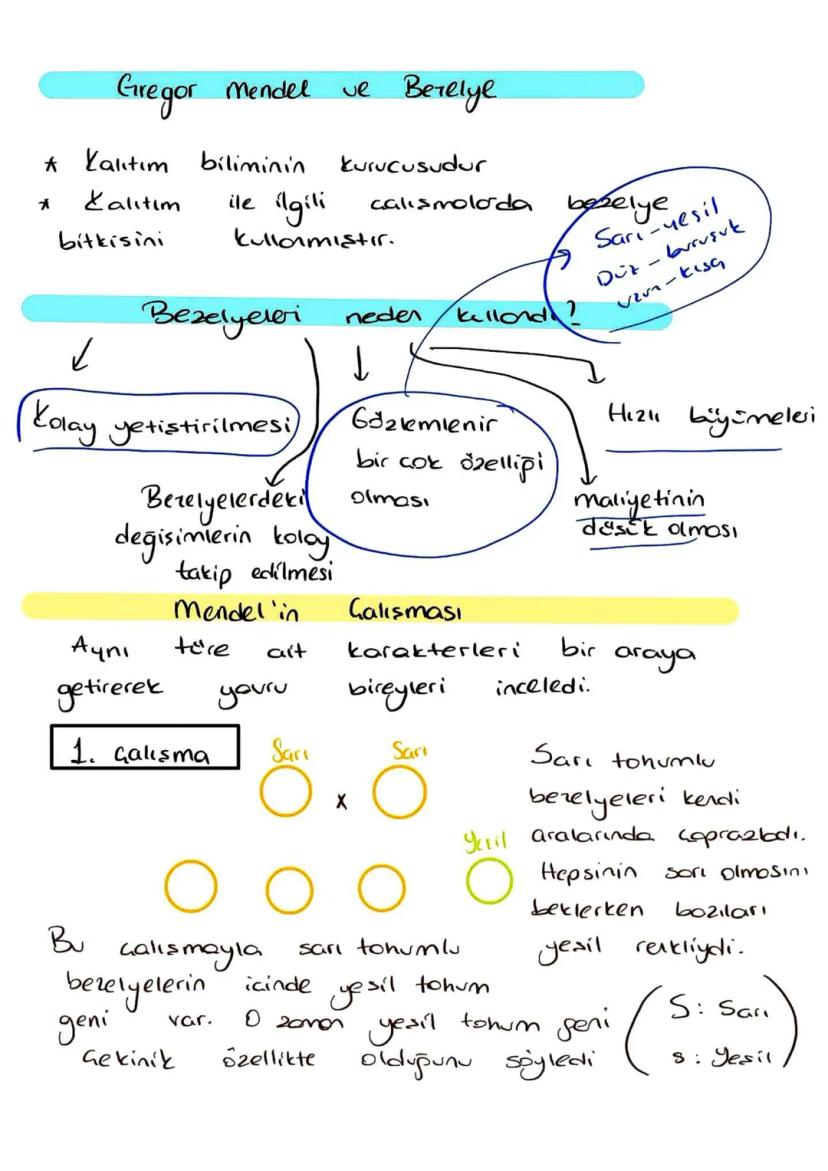 Gregor Mendel ve Bezelye
* Kalıtım biliminin kurucusudur
* Kalıtım ile ilgili calısmalarda bezelye
bitkisini kullanmıstır.
Sarı-yesil
Düz - burusuk
uzun-kısa
Bezelyeleri neden kullandı?
Kolay yetistirilmesi
Gözlemlenir
bir cok özelliği
olması
Hızlı büyümeleri
Bezelyelerdeki
değisimlerin kolay
takip edilmesi
maliyetinin
düsük olması
Mendel'in Çalısması
Aynı türe ait karakterleri bir araya
getirerek yavru bireyleri inceledi.
1. çalısma
Sarı Sarı
x
Yesil
Sarı tohumlu
bezelyeleri kendi
aralarında çaprazladı.
Hepsinin sarı olmasını
beklerken bazıları
yesil renkliydi.
Bu calısmayla sarı tohumlu
bezelyelerin icinde yesil tohum
geni var. O zaman yesil tohum geni
Çekinik özellikte olduğunu söyledi
S: Sarı
s: Yesil